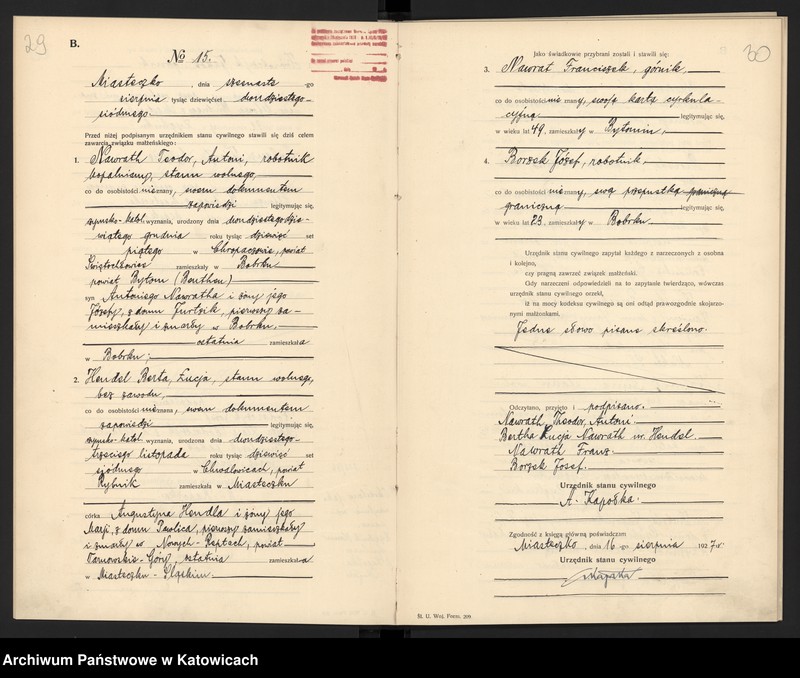 29
B.
№ 15.
Miasteczko, dnia szesnaste go
sierpnia tysiąc dziewięćset dwudziestego
siódmego.
Przed niżej podpisanym urzędnikiem stanu cywilnego stawili się dziś celem
zawarcia związku małżeńskiego:
1. Nawrath Teodor, Antoni, robotnik
kopalniany, stanu wolnego,
co do osobistości nieznany, swem dokumentem
zapowiedzi legitymując się,
rzymsko-katol. wyznania, urodzony dnia dwudziestego dzie-
wiątego grudnia roku tysiąc dziewięć set
piątego w Chropaczowie, powiat
Świętochłowice zamieszkały w Bobrku
powiat Bytom (Beuthen)
syn Antoniego Nawratha i żony jego
Józefy, z domu Jurtzik, pierwszy za-
mieszkały i zmarły w Bobrku.
ostatnia zamieszkała
w Bobrku;
2. Hendel Berta, Łucja, stanu wolnego,
bez zawodu,
co do osobistości nieznana, swem dokumentem
zapowiedzi legitymując się,
rzymsko-katol. wyznania, urodzona dnia dwudziestego-
trzeciego listopada roku tysiąc dziewięć set
siódmego w Chwałowicach, powiat
Rybnik zamieszkała w Miasteczku
córka Augustyna Hendla i żony jego
Marji, z domu Pawlica, pierwszy zamieszkały
i zmarły w Nowych Reptach, powiat
Tarnowskie-Góry, ostatnia zamieszkała
w Miasteczku-Śląskim.
30
Jako świadkowie przybrani zostali i stawili się:
3. Nawrat Franciszek, górnik,
co do osobistości nieznany, swoją kartą cyrkula-
cyjną legitymując się,
w wieku lat 49, zamieszkały w Bytomiu,
4. Borzek Józef, robotnik,
co do osobistości nieznany, swą przepustką graniczną
graniczną legitymując się,
w wieku lat 23, zamieszkały w Bobrku.
Urzędnik stanu cywilnego zapytał każdego z narzeczonych z osobna
i kolejno,
czy pragną zawrzeć związek małżeński.
Gdy narzeczeni odpowiedzieli na to zapytanie twierdząco, wówczas
urzędnik stanu cywilnego orzekł,
iż na mocy kodeksu cywilnego są oni odtąd prawozgodnie skojarzo-
nymi małżonkami.
Jedne słowo pisane skreślono.
Odczytano, przyjęto i podpisano.
Nawrath, Theodor, Antoni.
Bertha Łucja Nawrath ur. Hendel.
Nawrath Franz.
Borzek Josef.
Urzędnik stanu cywilnego
A. Kapołka.
Zgodność z księgą główną poświadczam
Miasteczko, dnia 16-go sierpnia 1927 r.
Urzędnik stanu cywilnego
Kapołka
St. U. Woj. Form. 209
Archiwum Państwowe w Katowicach